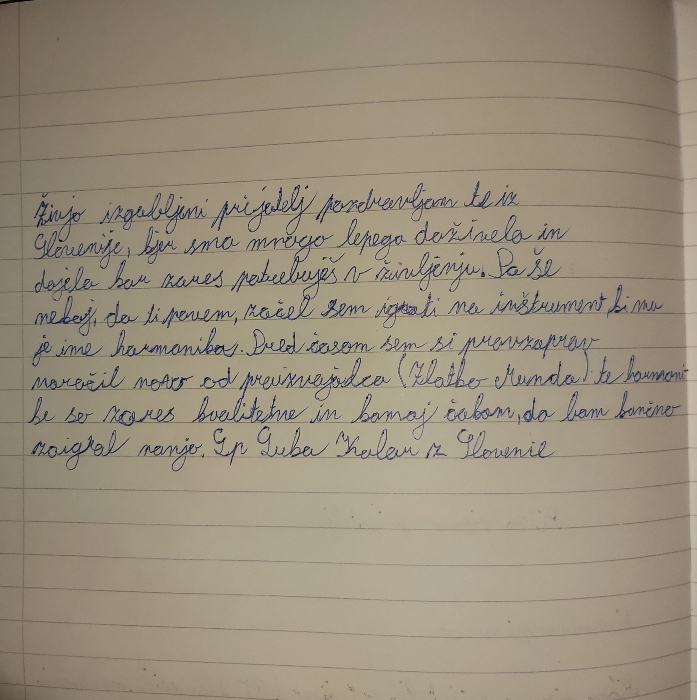 Živjo izgubljeni prijatelj pozdravljam te iz
Slovenije, kjer smo mnogo lepega doživela in
dojela kar zares potrebuješ v življenju. Pa še
nekaj, da ti povem, začel sem igrati na inštrument, ki mu
je ime harmonika. Pred časom sem si pravzaprav
naročil novo od proizvajalca (Zlatko Munda) te harmoni
ke so zares kvalitetne in komaj čakam, da bom končno
zaigral nanjo. Lp Luka Kolar iz Slovenie